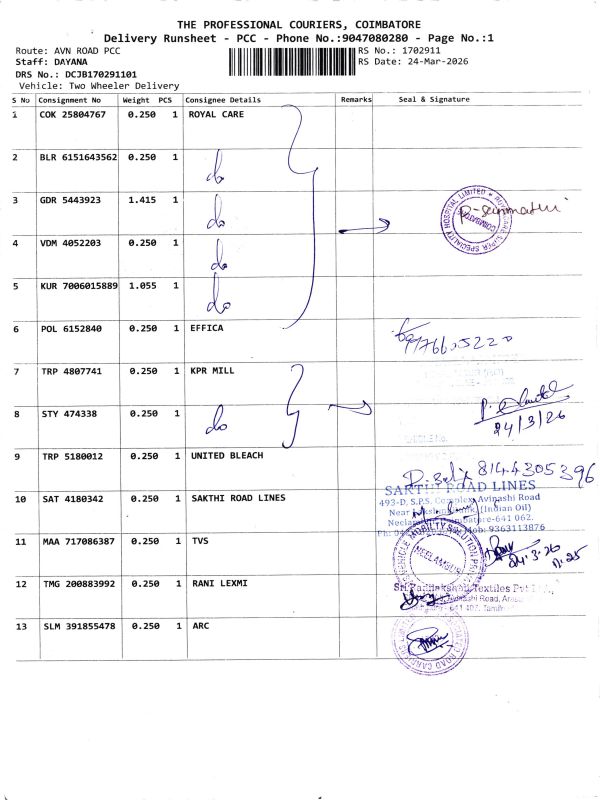 THE PROFESSIONAL COURIERS, COIMBATORE
Delivery Runsheet - PCC - Phone No.:9047080280 - Page No.:1
Route: AVN ROAD PCC
RS No.: 1702911
Staff: DAYANA
RS Date: 24-Mar-2026
DRS No.: DCJB170291101
Vehicle: Two Wheeler Delivery
S No Consignment No Weight PCS Consignee Details Remarks Seal & Signature
1 COK 25804767 0.250 1 ROYAL CARE
2 BLR 6151643562 0.250 1 do
3 GDR 5443923 1.415 1 do
4 VDM 4052203 0.250 1 do
5 KUR 7006015889 1.055 1 do
6 POL 6152840 0.250 1 EFFICA
7 TRP 4807741 0.250 1 KPR MILL
8 STY 474338 0.250 1 do
24/3/26
9 TRP 5180012 0.250 1 UNITED BLEACH
8144305396
10 SAT 4180342 0.250 1 SAKTHI ROAD LINES
SAKTHI ROAD LINES
493-D, S.P.S. Complex, Avinashi Road
(Indian Oil)
641 062.
Mob: 9363113876
11 MAA 717086387 0.250 1 TVS
NEELAMBUR
24.3.26
12 TMG 200883992 0.250 1 RANI LEXMI
Textiles
Avinashi Road,
13 SLM 391855478 0.250 1 ARC